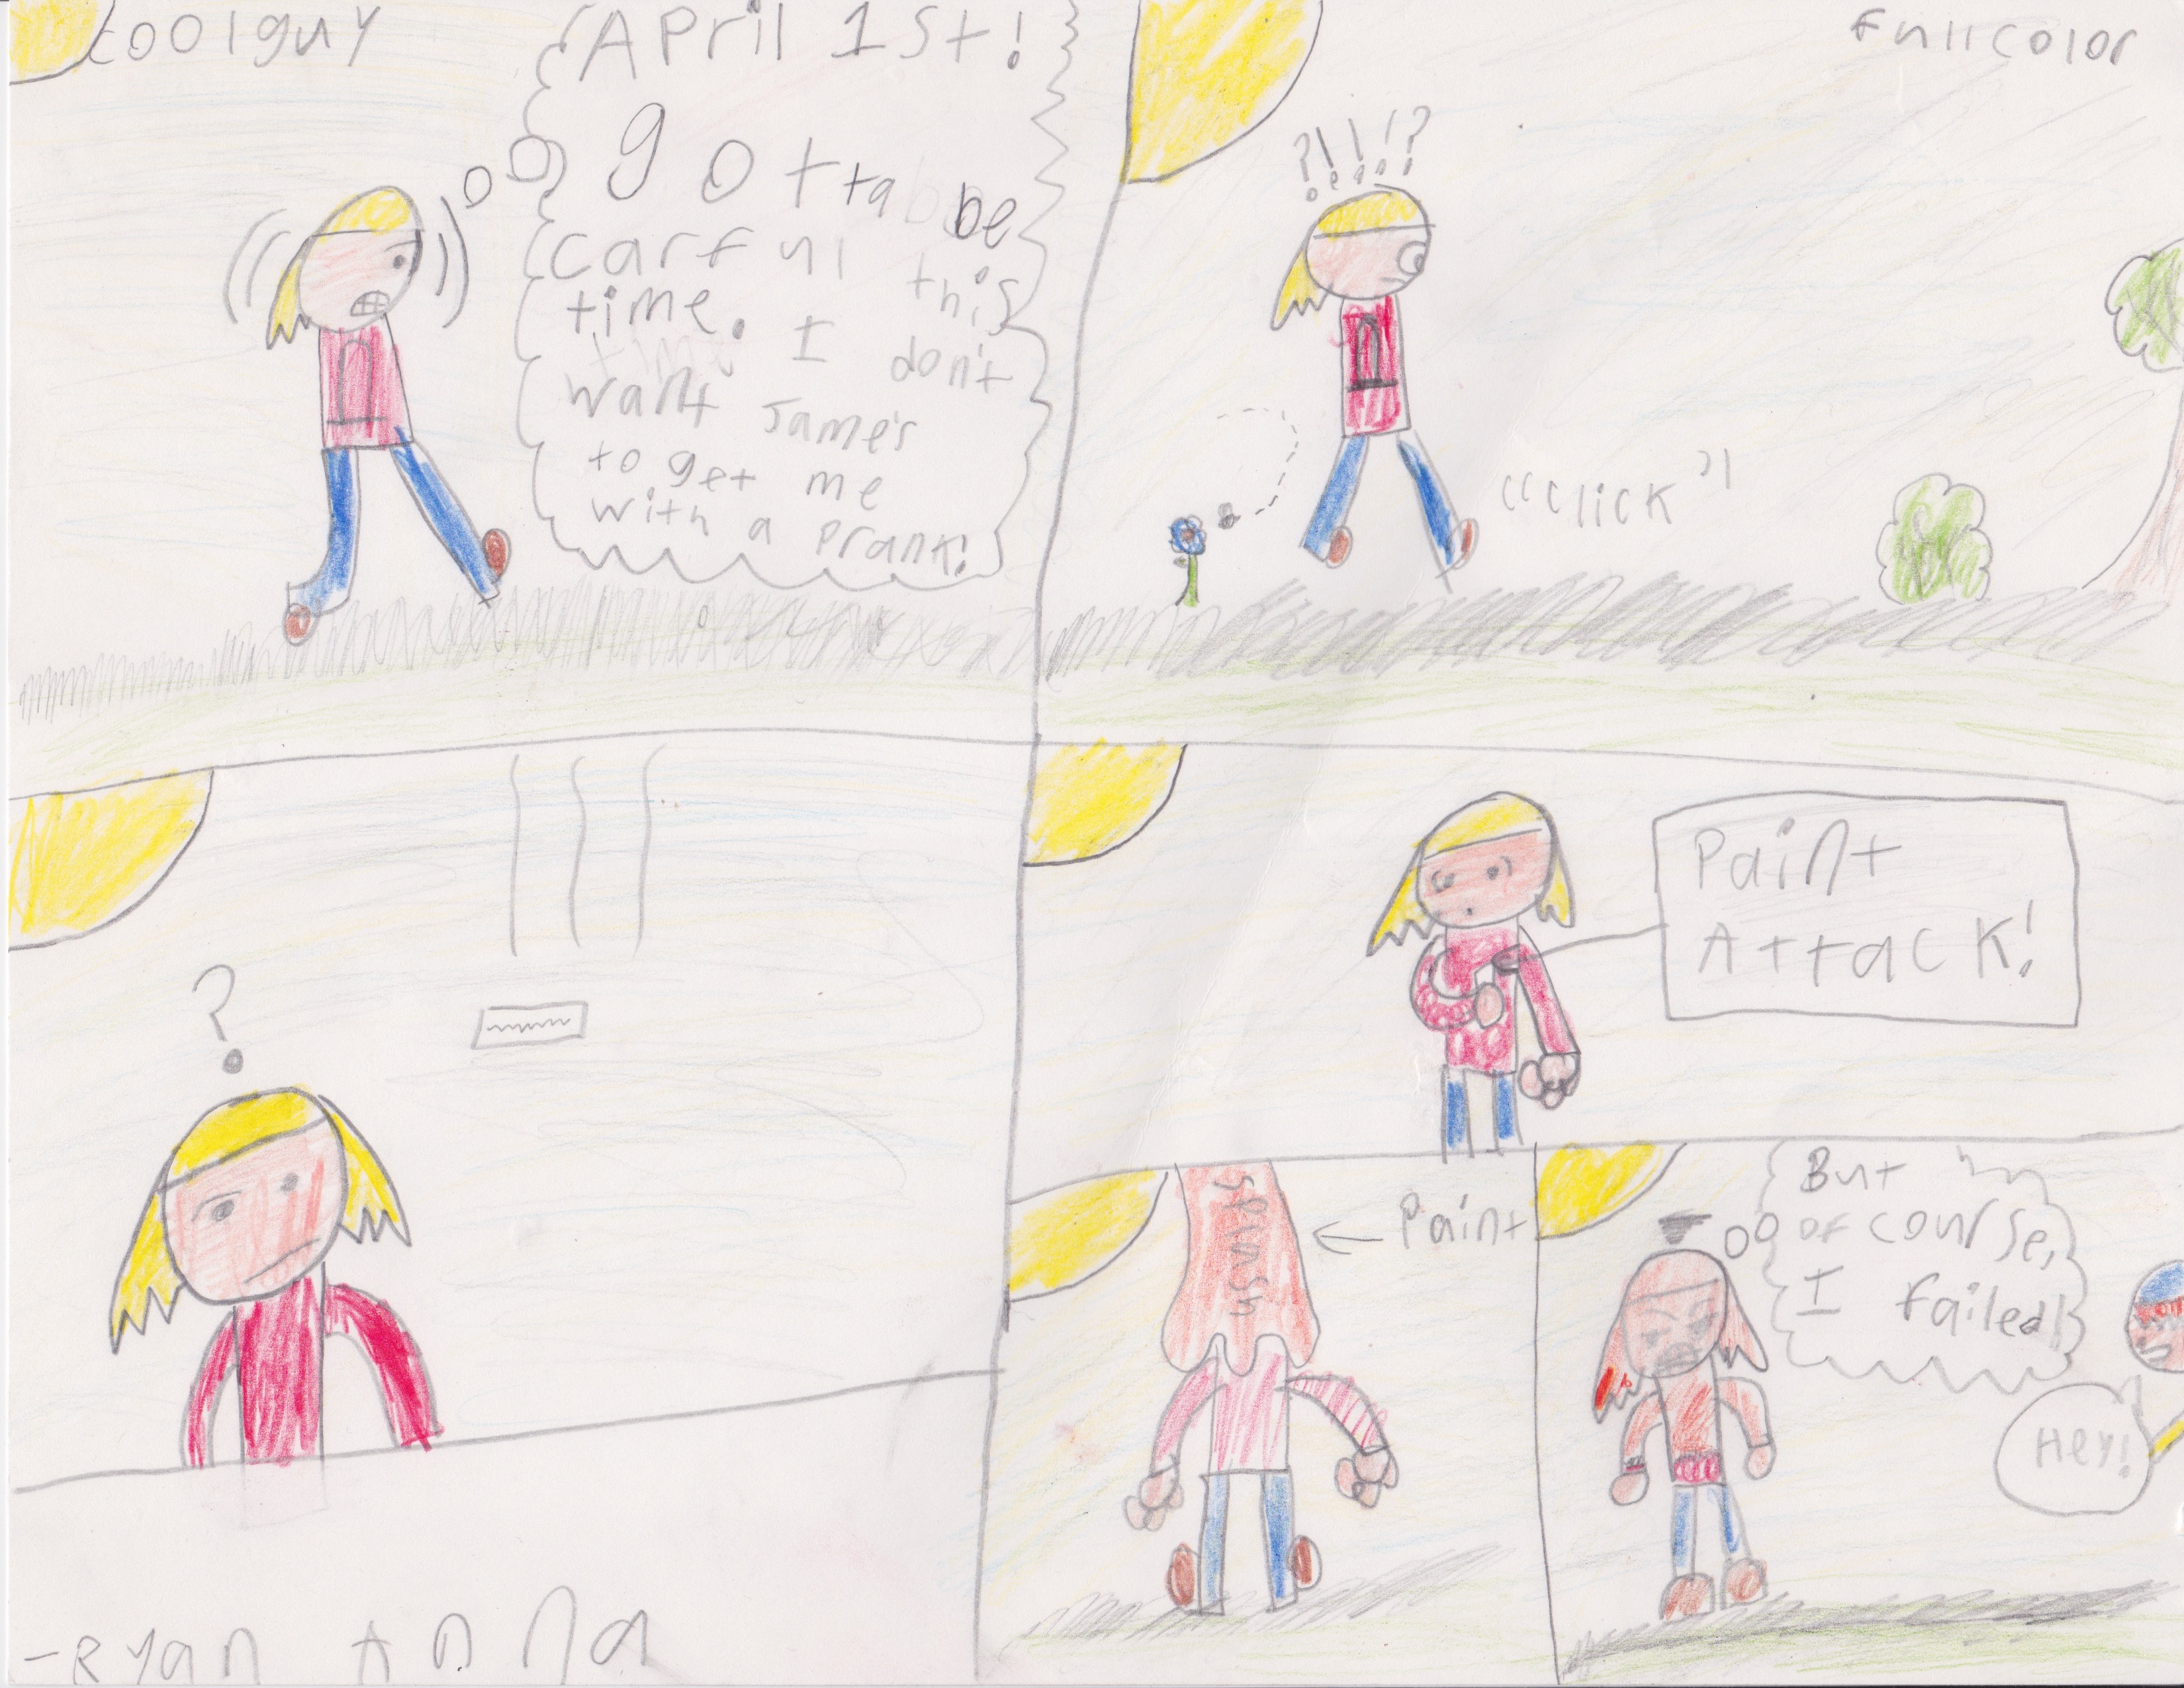 coolguy
April 1st!
gotta be
carful this
time. I don't
want Jame's
to get me
with a prank!
fullcolor
?!!!!?
"click"
?
Paint
Attack!
Splash
← Paint
But
of course,
I failed!
Hey!
-Ryan Anna